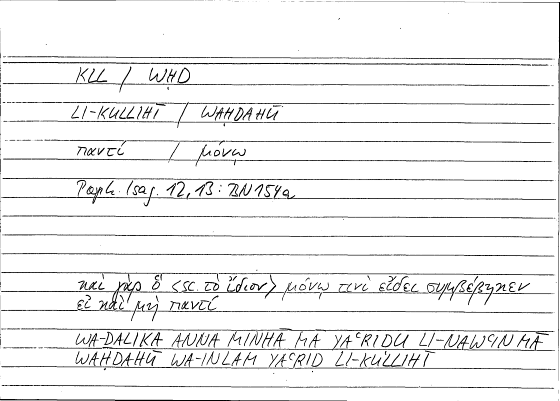 KLL / WḤD
LI-KULLIHĪ / WAḤDAHŪ
παντί / μόνῳ
Porph. Isag. 12, 13 : BN 154a
καὶ γὰρ ὃ <sc. τὸ ἴδιον> μόνῳ τινὶ εἴδει συμβέβηκεν
εἰ καὶ μὴ παντί
WA-ḎALIKA ANNA MINHĀ MĀ YAʿRIḌU LI-NAWʿIN MĀ
WAḤDAHŪ WA-IN LAM YAʿRIḌ LI-KULLIHĪ